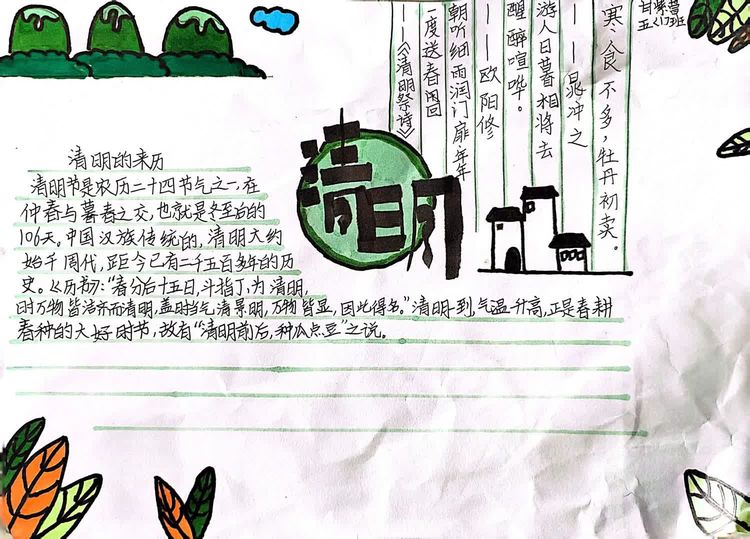 甘紫萱
五<173>班
寒食不多，牡丹初卖。
——晁冲之
游人日暮相将去
醒醉喧哗。
——欧阳修
朝听细雨润门扉，年年
一度送春回
——《清明祭诗》
清明
清明的来历
清明节是农历二十四节气之一，在
仲春与暮春之交，也就是冬至后的
106天。中国汉族传统的，清明大约
始于周代，距今已有二千五百多年的历
史。《历书》：“春分后十五日，斗指丁，为清明，
时万物皆洁齐而清明，盖时当气清景明，万物皆显，因此得名。”清明一到，气温升高，正是春耕
春种的大好时节，故有“清明前后，种瓜点豆”之说。